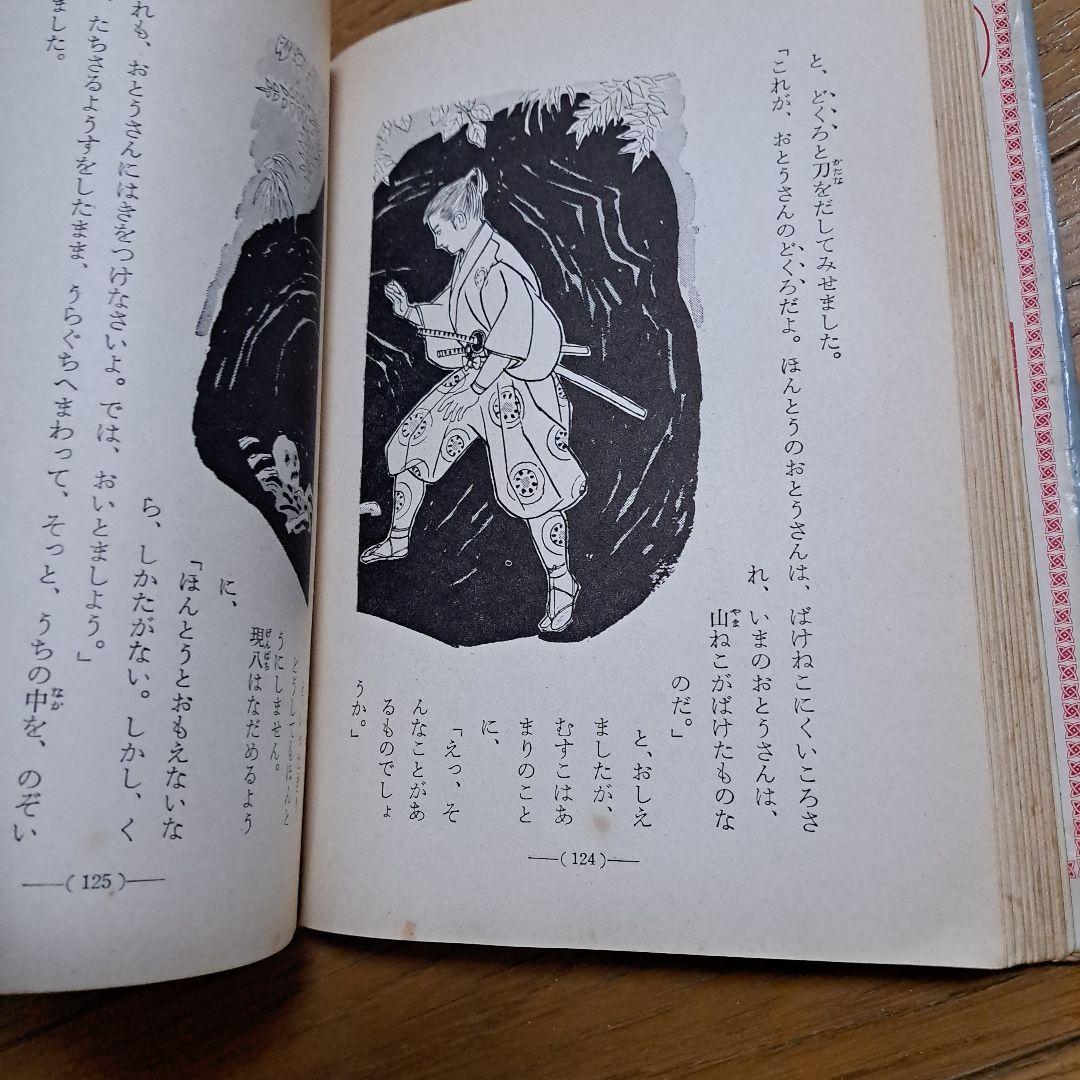 と、どくろと刀をだしてみせました。
「これが、おとうさんのどくろだよ。ほんとうのおとうさんは、ばけねこにくいころさ
れ、いまのおとうさんは、
山ねこがばけたものな
のだ。」
と、おしえ
ましたが、
むすこはあ
まりのこと
に、
「えっ、そ
んなことがあ
るものでしょ
うか。」
(124)
どうしてもほんと
うにしません。
現八はなだめるよう
に、
「ほんとうとおもえないな
ら、しかたがない。しかし、く
れも、おとうさんにはきをつけなさいよ。では、おいとましよう。」
たちさるようすをしたまま、うらぐちへまわって、そっと、うちの中を、のぞい
ました。
(125)